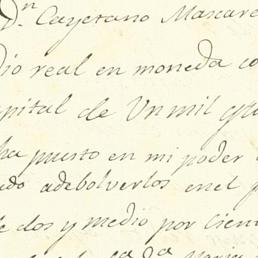 Dn. Cayetano Mascare
dio real en moneda co
pital de Un mil qu
ha puesto en mi poder
ado adebolverlos enel p
e dos y medio por cien